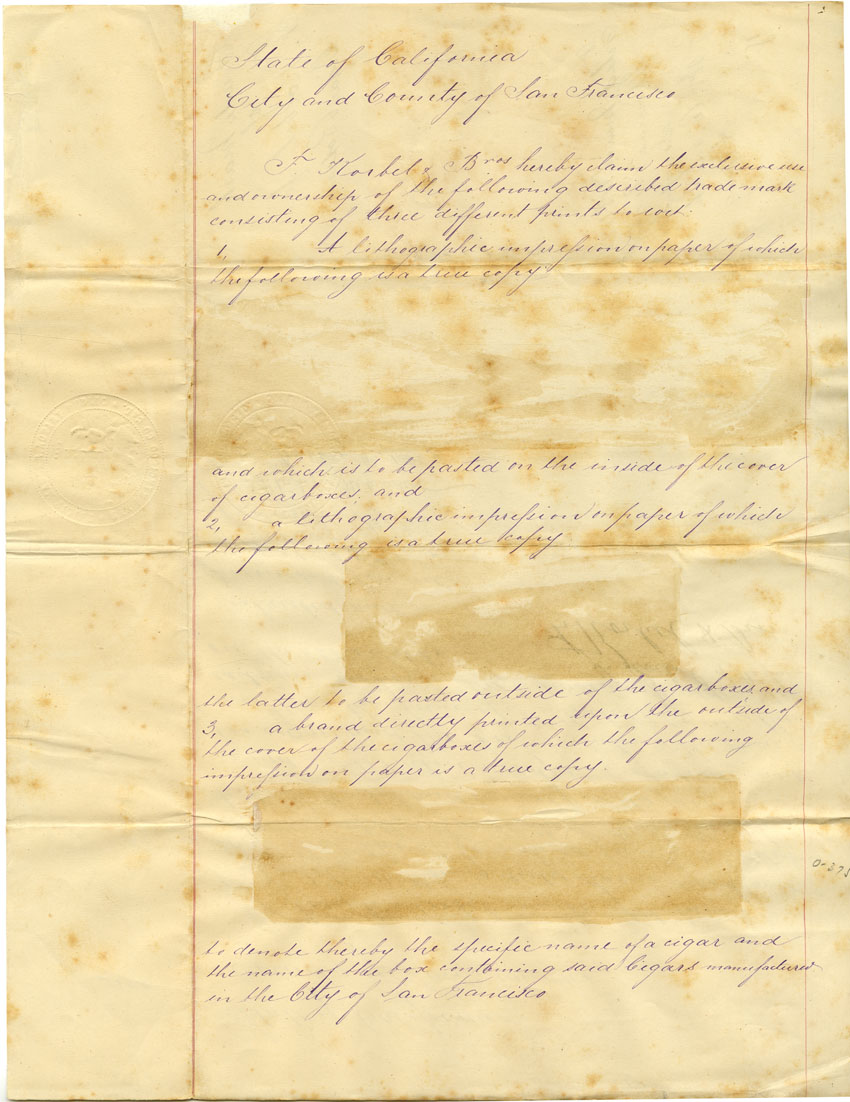 State of California
City and County of San Francisco
F. Korbel & Bros hereby claim the exclusive use
and ownership of the following described trade mark
consisting of three different prints to wit:
1, A lithographic impression on paper of which
the following is a true copy
and which is to be pasted on the inside of the cover
of cigarboxes, and
2, a lithographic impression on paper of which
the following is a true copy
the latter to be pasted outside of the cigarboxes, and
3, a brand directly printed upon the outside of
the cover of the cigarboxes of which the following
impression on paper is a true copy.
0-375
to denote thereby the specific name of a cigar and
the name of the box containing said Cigars manufactured
in the City of San Francisco